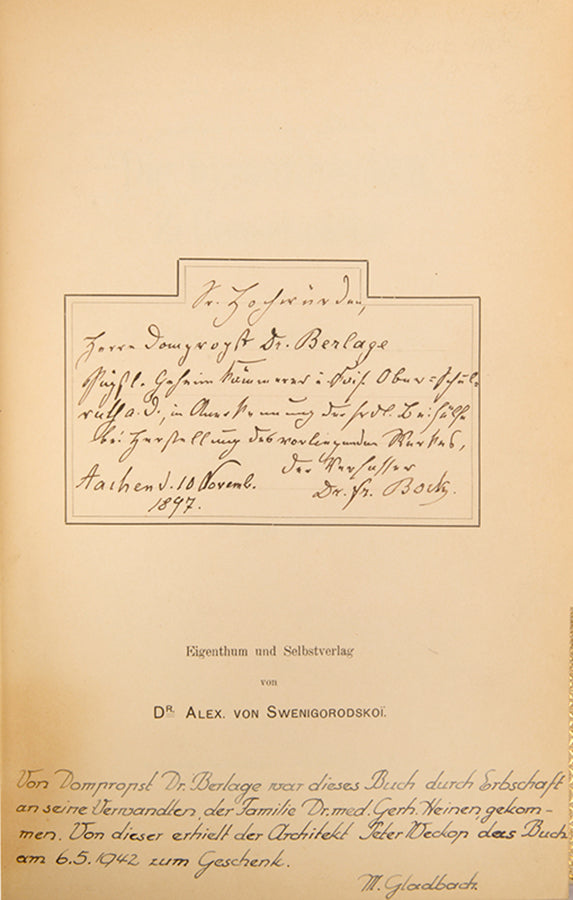 Sr. Hochwürden,
Herrn Dompropst Dr. Berlage
Päpstl. Geheim Kämmerer u. Ober-Schul-
rath a. D., in Anerkennung der frdl. Beihülfe
bei Herstellung des vorliegenden Werkes,
der Verfasser
Aachen d. 10 Novemb.
1897.
Dr. Fr. Bock.
Eigenthum und Selbstverlag
von
DR. ALEX. VON SWENIGORODSKOÏ.
Von Dompropst Dr. Berlage war dieses Buch durch Erbschaft
an seine Verwandten, der Familie Dr. med. Gerh. Heinen, gekom-
men. Von dieser erhielt der Architekt Peter das Buch
am 6.5.1942 zum Geschenk.
M. Gladbach.